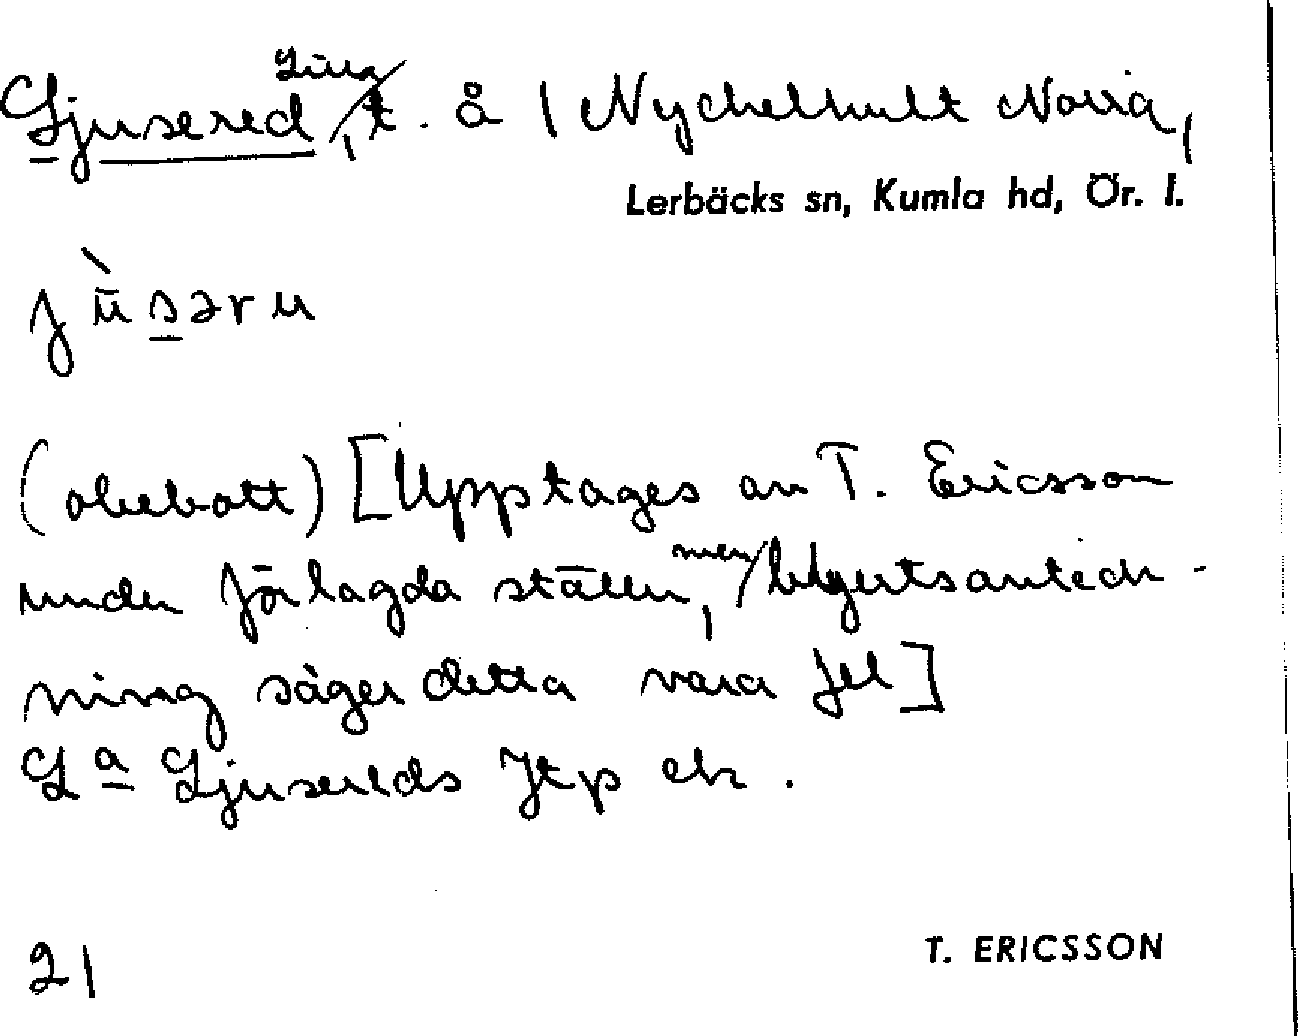 Ljusered, Lilla t. å 1 Nyckelhult Norra,
Lerbäcks sn, Kumla hd, Ör. l.
jùsəru
(obebott) [Upptages av T. Ericsson
under förlagda ställen, men blyertsanteck-
ning säger detta vara fel]
La Ljusereds jtp ek.
21
T. ERICSSON